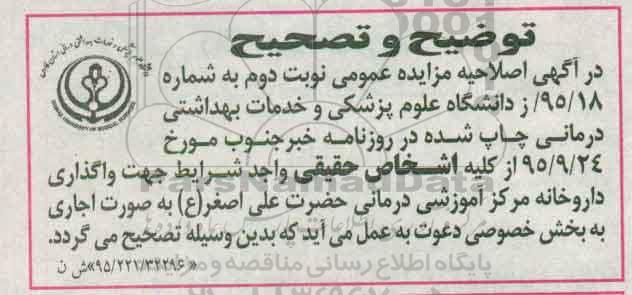 توضیح و تصحیح
در آگهی اصلاحیه مزایده عمومی نوبت دوم به شماره
۹۵/۱۸/ ز دانشگاه علوم پزشکی و خدمات بهداشتی
درمانی چاپ شده در روزنامه خبرجنوب مورخ
۹۵/۹/۲۴ از کلیه اشخاص حقیقی واجد شرایط جهت واگذاری
داروخانه مرکز آموزشی درمانی حضرت علی اصغر(ع) به صورت اجاری
به بخش خصوصی دعوت به عمل می آید که بدین وسیله تصحیح می گردد.
«۹۵/۲۲۱/۳۲۲۹۶» ش ن
ParsNamadData
پایگاه اطلاع رسانی مناقصه و مزایده